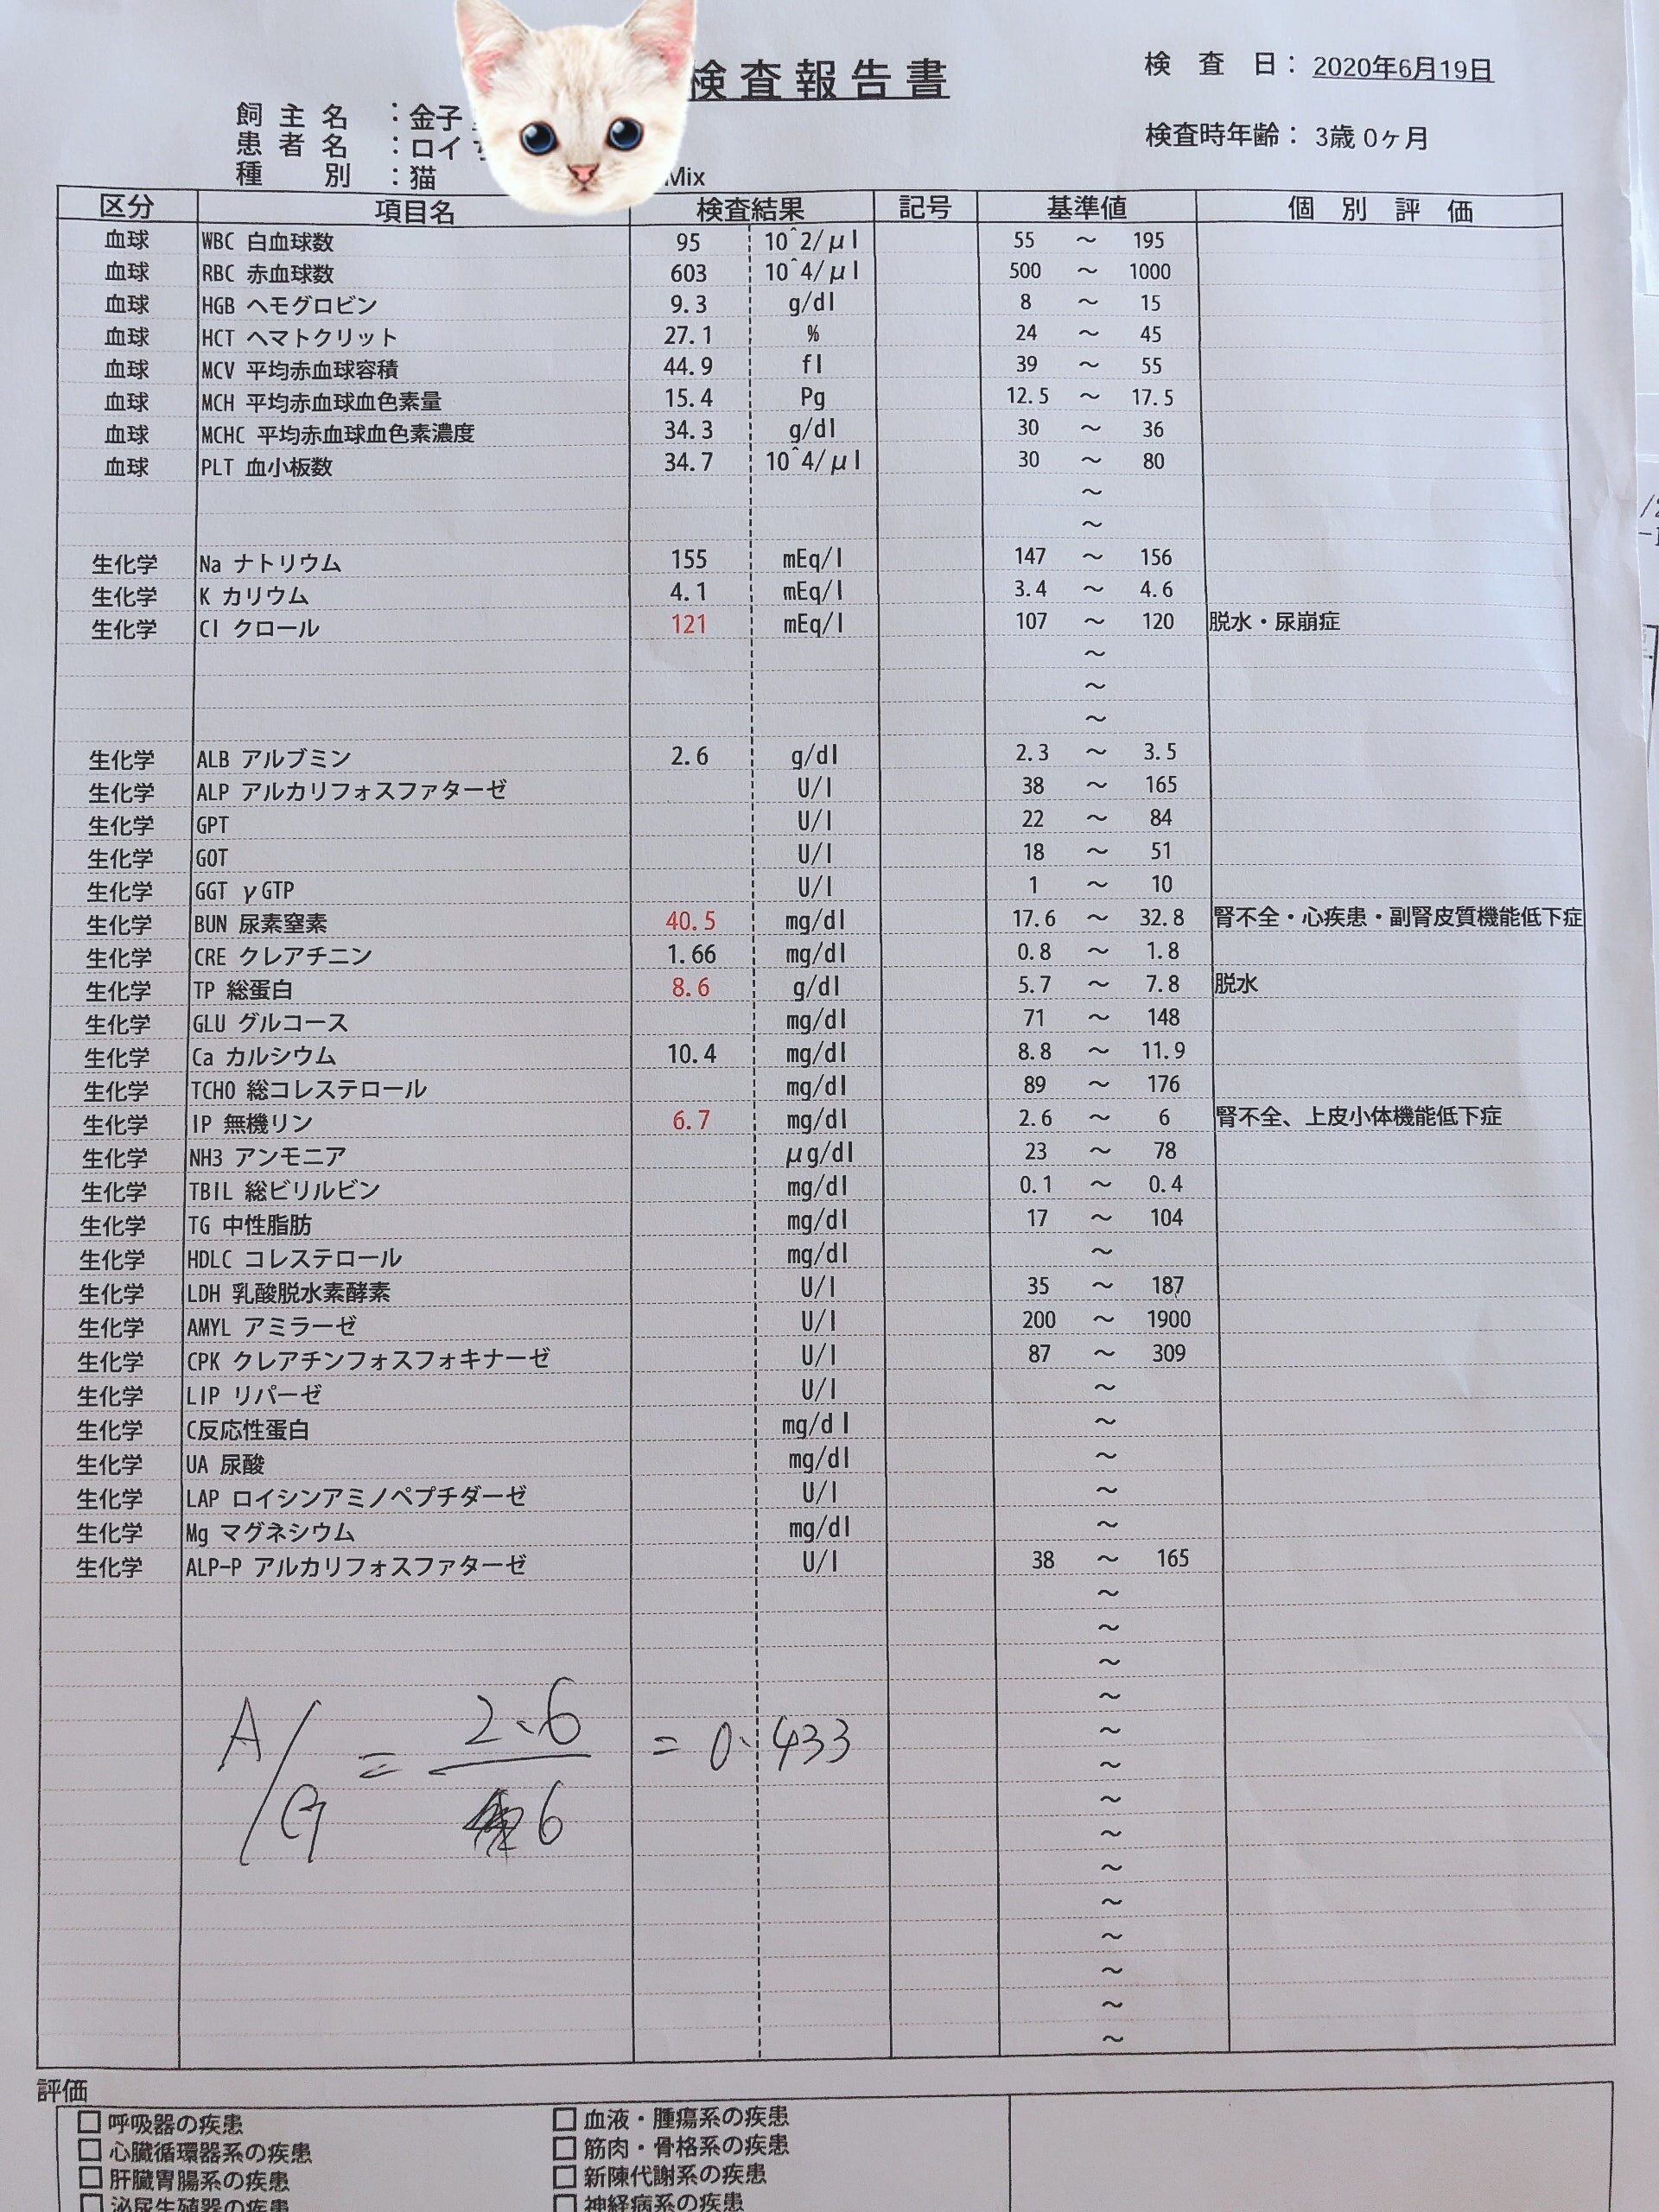 検査報告書
検 査 日： 2020年6月19日
飼 主 名 ：金子
検査時年齢： 3歳 0ヶ月
患 者 名 ：ロイ
種 別 ：猫 Mix
区分 項目名 検査結果 記号 基準値 個 別 評 価
血球 WBC 白血球数 95 10^2/μl 55 ～ 195
血球 RBC 赤血球数 603 10^4/μl 500 ～ 1000
血球 HGB ヘモグロビン 9.3 g/dl 8 ～ 15
血球 HCT ヘマトクリット 27.1 % 24 ～ 45
血球 MCV 平均赤血球容積 44.9 fl 39 ～ 55
血球 MCH 平均赤血球血色素量 15.4 Pg 12.5 ～ 17.5
血球 MCHC 平均赤血球血色素濃度 34.3 g/dl 30 ～ 36
血球 PLT 血小板数 34.7 10^4/μl 30 ～ 80
～
～
生化学 Na ナトリウム 155 mEq/l 147 ～ 156
生化学 K カリウム 4.1 mEq/l 3.4 ～ 4.6
生化学 Cl クロール 121 mEq/l 107 ～ 120 脱水・尿崩症
～
～
～
生化学 ALB アルブミン 2.6 g/dl 2.3 ～ 3.5
生化学 ALP アルカリフォスファターゼ U/l 38 ～ 165
生化学 GPT U/l 22 ～ 84
生化学 GOT U/l 18 ～ 51
生化学 GGT γGTP U/l 1 ～ 10
生化学 BUN 尿素窒素 40.5 mg/dl 17.6 ～ 32.8 腎不全・心疾患・副腎皮質機能低下症
生化学 CRE クレアチニン 1.66 mg/dl 0.8 ～ 1.8
生化学 TP 総蛋白 8.6 g/dl 5.7 ～ 7.8 脱水
生化学 GLU グルコース mg/dl 71 ～ 148
生化学 Ca カルシウム 10.4 mg/dl 8.8 ～ 11.9
生化学 TCHO 総コレステロール mg/dl 89 ～ 176
生化学 IP 無機リン 6.7 mg/dl 2.6 ～ 6 腎不全、上皮小体機能低下症
生化学 NH3 アンモニア μg/dl 23 ～ 78
生化学 TBIL 総ビリルビン mg/dl 0.1 ～ 0.4
生化学 TG 中性脂肪 mg/dl 17 ～ 104
生化学 HDLC コレステロール mg/dl ～
生化学 LDH 乳酸脱水素酵素 U/l 35 ～ 187
生化学 AMYL アミラーゼ U/l 200 ～ 1900
生化学 CPK クレアチンフォスフォキナーゼ U/l 87 ～ 309
生化学 LIP リパーゼ U/l ～
生化学 C反応性蛋白 mg/dl ～
生化学 UA 尿酸 mg/dl ～
生化学 LAP ロイシンアミノペプチダーゼ U/l ～
生化学 Mg マグネシウム mg/dl ～
生化学 ALP-P アルカリフォスファターゼ U/l 38 ～ 165
～
～
～
～
～
～
～
～
～
～
～
～
～
～
A/G = 2.6 / 6 = 0.433
評価
□ 呼吸器の疾患 □ 血液・腫瘍系の疾患
□ 心臓循環器系の疾患 □ 筋肉・骨格系の疾患
□ 肝臓胃腸系の疾患 □ 新陳代謝系の疾患
□ 泌尿生殖器の疾患 □ 神経病系の疾患